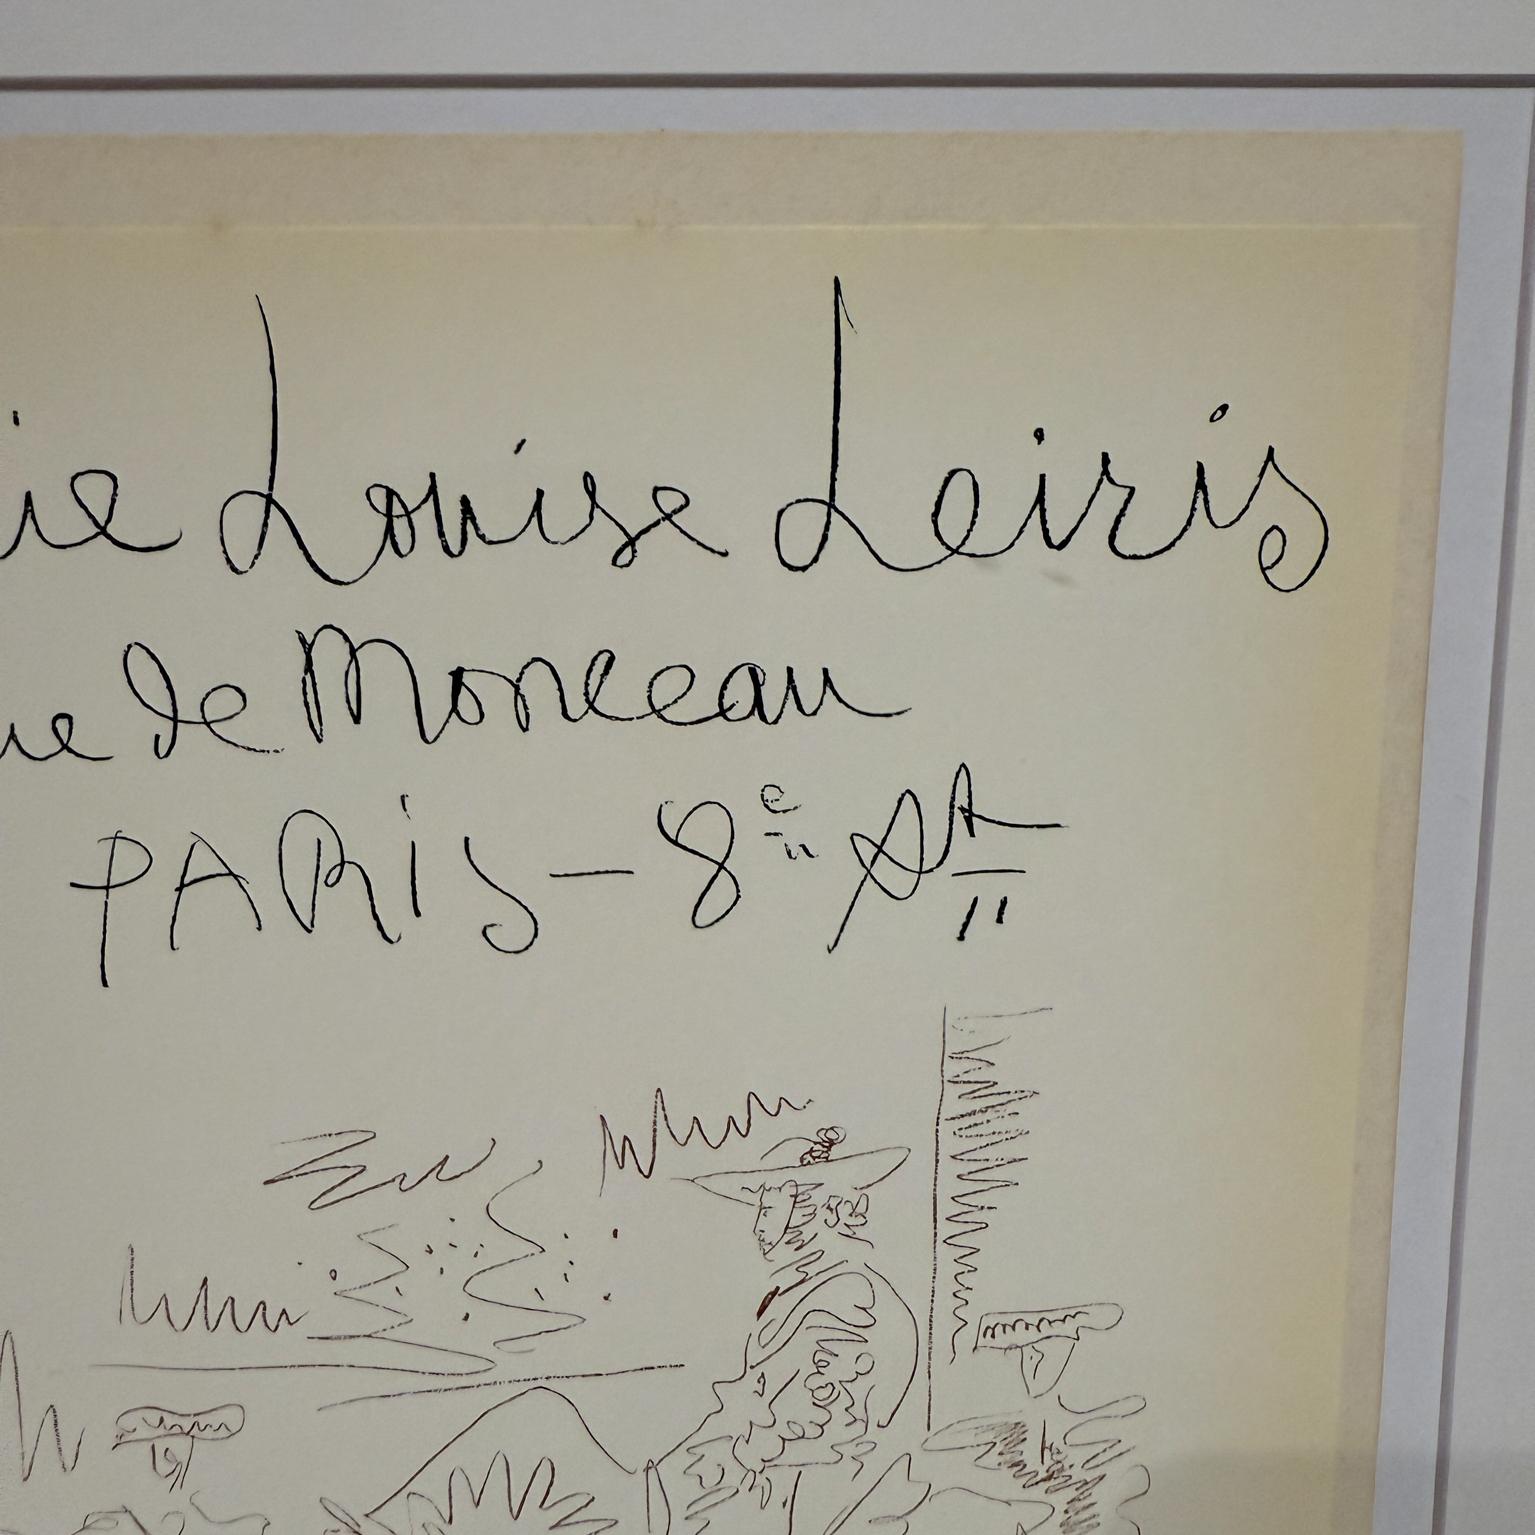 ie Louise Leiris
ue de Monceau
PARiS - 8e